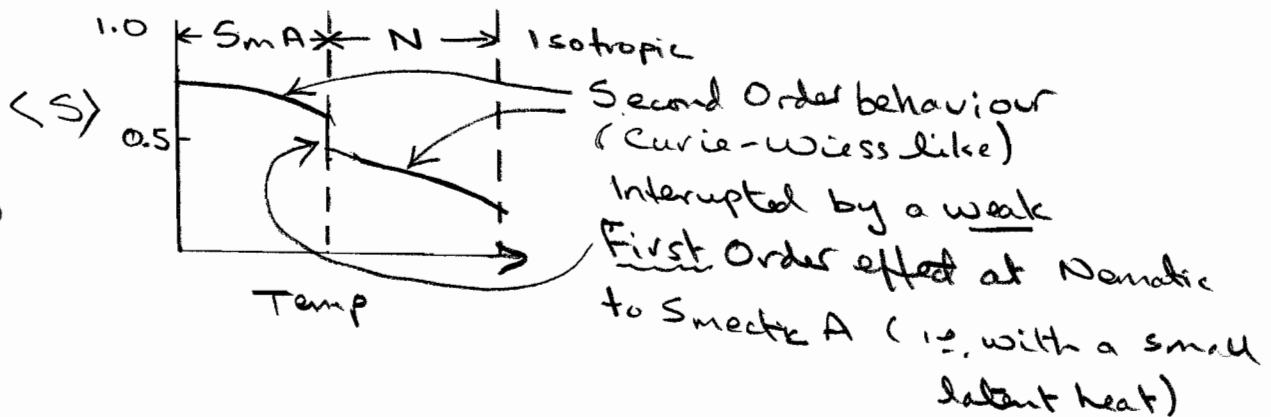 1.0 ← SmA → ← N → Isotropic
<S>
0.5
Second Order behaviour
(Curie-Wiess like)
Interupted by a weak
First Order effect at Nematic
to Smectic A (ie. with a small
latent heat)
Temp